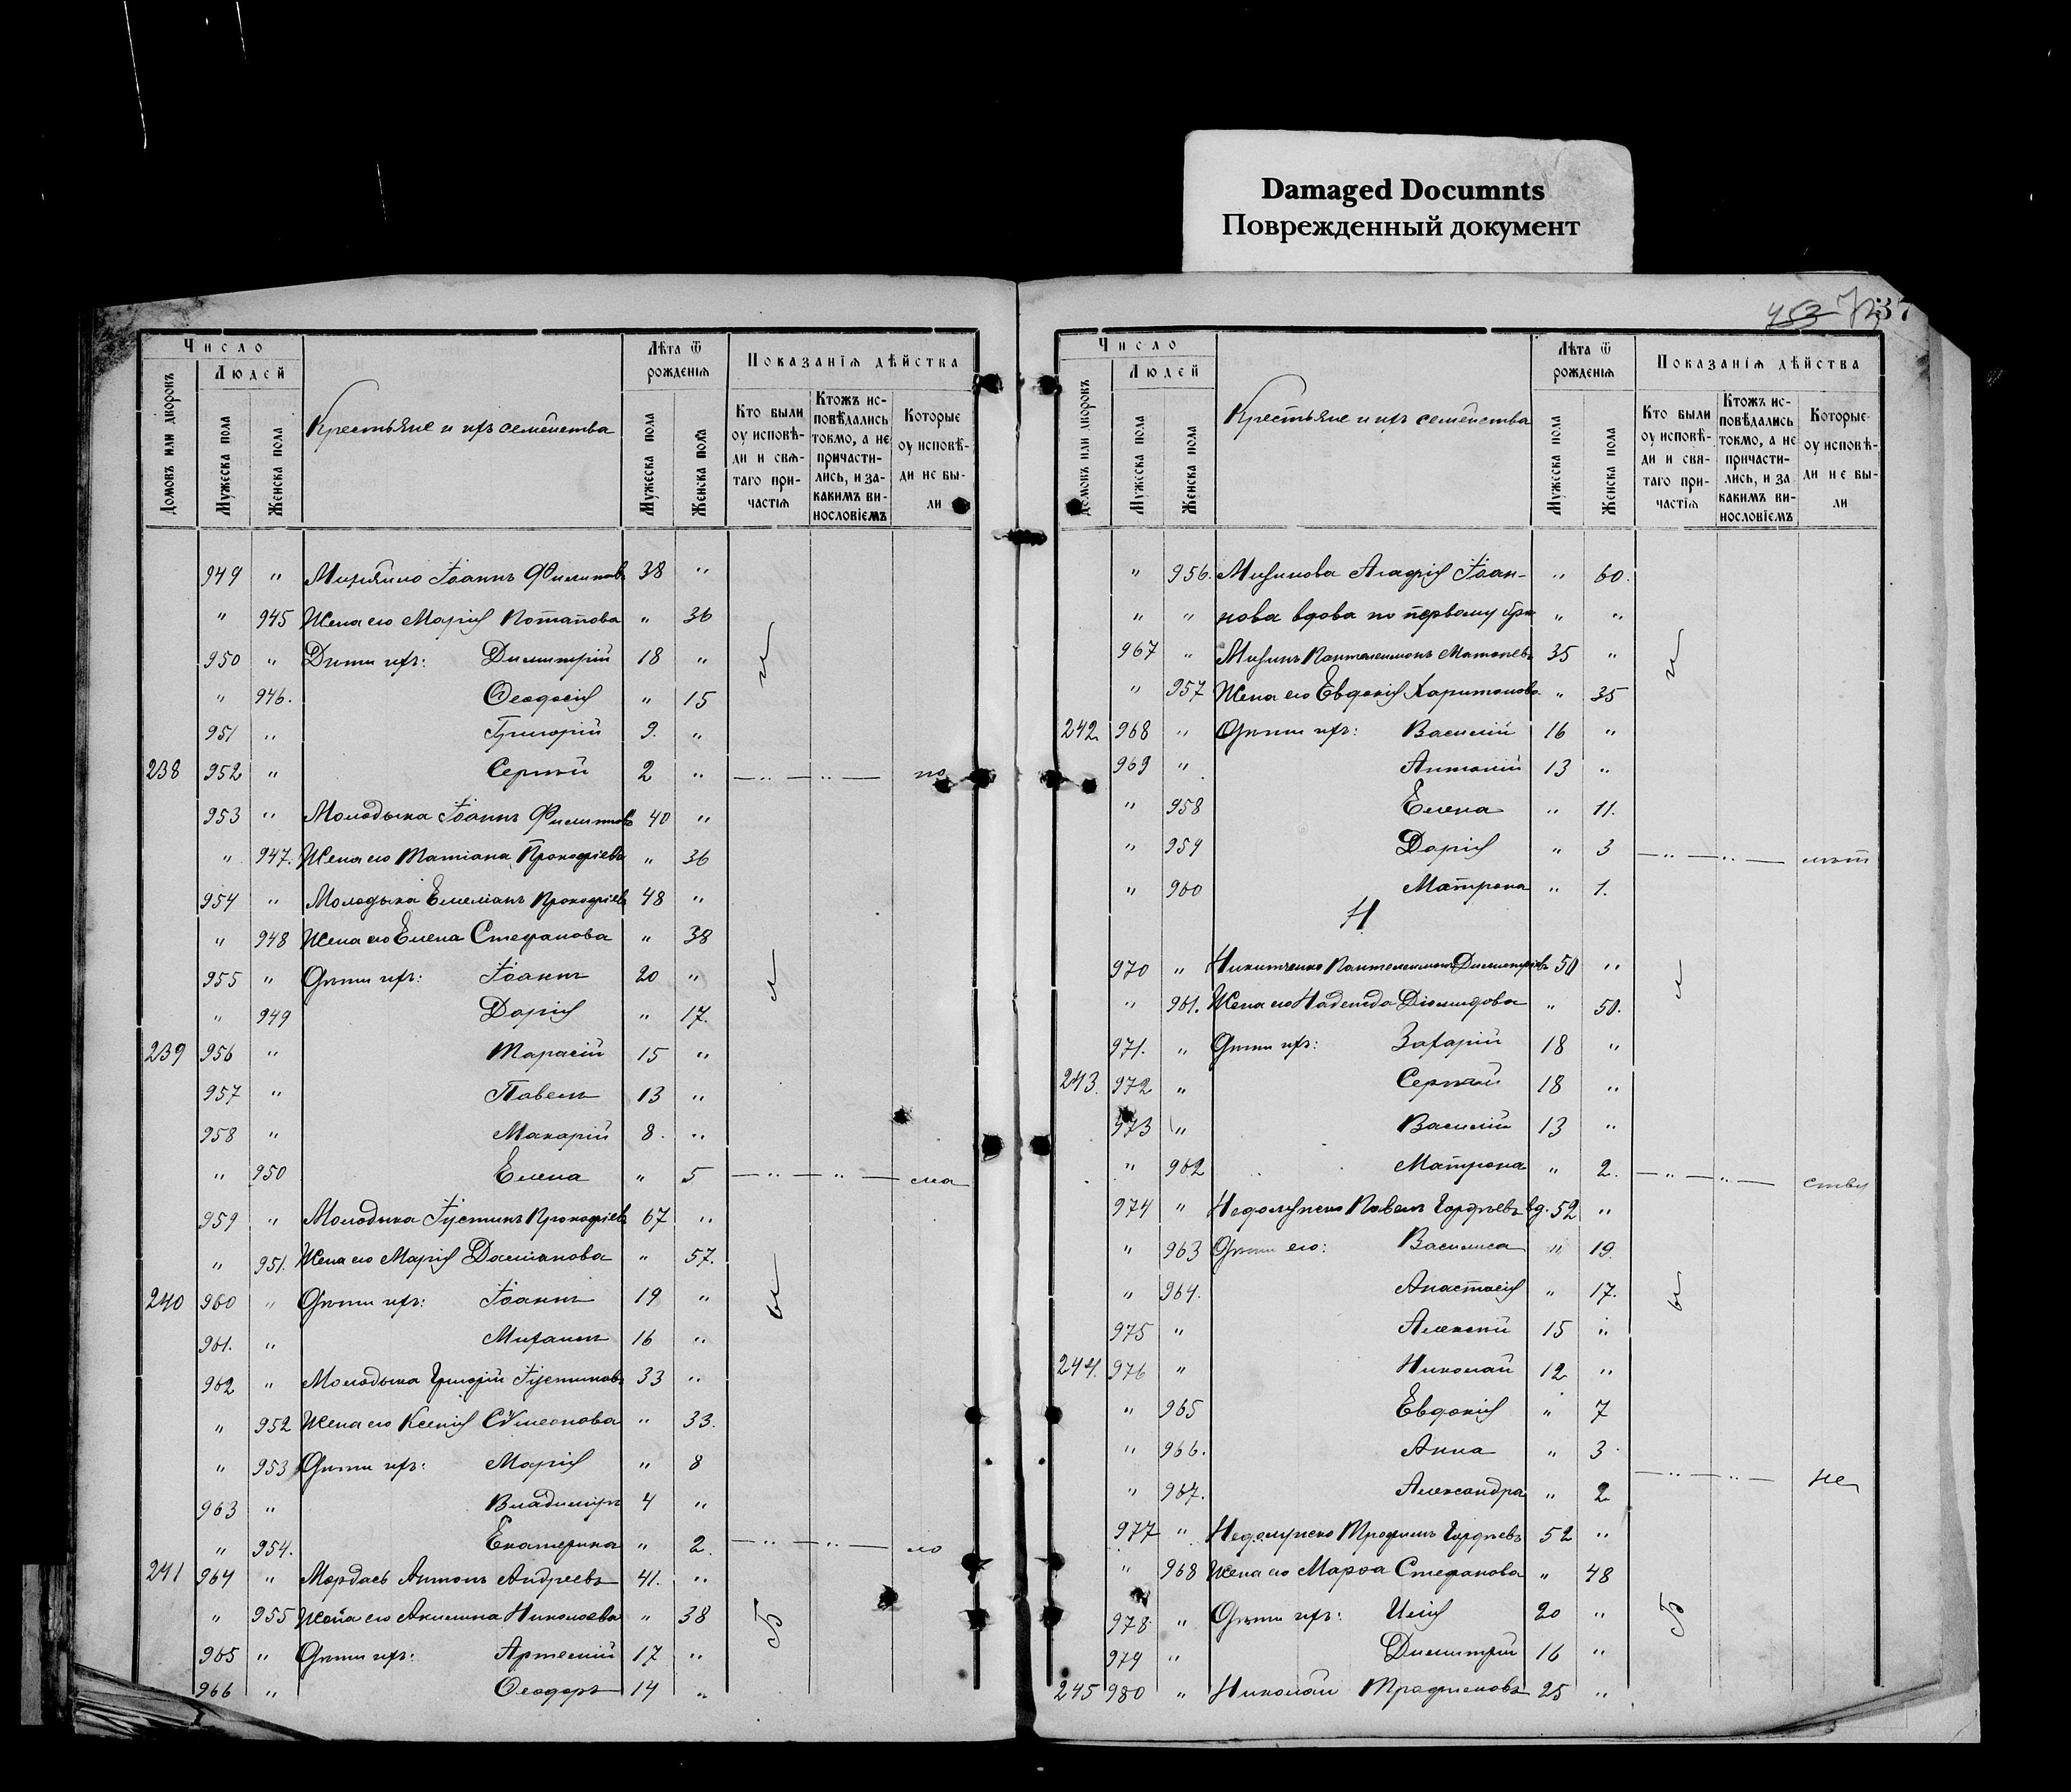 Damaged Documnts
Поврежденный документ
453 72 37
Число
Людей
Домовъ или дворовъ
Мужеска пола
Женска пола
Крестьяне и ихъ семейства
Лѣта ѿ рожденiѧ
Мужеска пола
Женска пола
Показанiѧ дѣйства
Кто были оу исповѣ-ди и свѧ-таго при-частiѧ
Ктожъ ис-повѣдались токмо, а не причасти-лись, и за-какимъ ви-нословiемъ
Которые оу исповѣ-ди не бы-ли
949 " Іоаннъ Филиповъ 38 "
" 945 Жена его Марія Потапова " 36
950 " Дѣти ихъ: Димитрій 18 "
" 946. Ѳеодосія " 15
951 " Григорій 9. "
238 952 " Сергій 2 " — " — " — по
953 " Молодыка Іоаннъ Филиповъ 40 "
" 947. Жена его Татіана Прокофіева " 36
954 " Молодыка Емеліанъ Прокофіевъ 48 "
" 948 Жена его Елена Стефанова " 38
955 " Дѣти ихъ: Іоаннъ 20 "
" 949 Дарія " 17.
239 956 " Тарасій 15 "
957 " Павелъ 13 "
958 " Макарій 8. "
" 950 Елена " 5 — " — " — ма
959 " Молодыка Іустинъ Прокофіевъ 67 "
" 951. Жена его Марія Даміанова " 57.
240 960 " Дѣти ихъ: Іоаннъ 19 "
961. " Михаилъ 16 "
962 " Молодыка Григорій Іустиновъ 33 "
" 952 Жена его Ксенія Сѵмеонова " 33.
" 953 Дѣти ихъ: Марія " 8
963 " Владиміръ 4 "
" 954. Екатерина " 2. — " — " — ло
241 964 " Мордась Антонъ Андреевъ 41. "
" 955 Жена его Акилина Николаева " 38
965 " Дѣти ихъ: Артемій 17 "
966 " Ѳеодоръ 14 "
Число
Людей
Домовъ или дворовъ
Мужеска пола
Женска пола
Крестьяне и ихъ семейства
Лѣта ѿ рожденiѧ
Мужеска пола
Женска пола
Показанiѧ дѣйства
Кто были оу исповѣ-ди и свѧ-таго при-частiѧ
Ктожъ ис-повѣдались токмо, а не причасти-лись, и за какимъ ви-нословiемъ
Которые оу исповѣ-ди не бы-ли
" 956. Мизинова Агафія Іоан- " 60.
" " нова вдова по первому бра " "
967 " Мизинъ Пантелеимонъ 35 "
" 957 Жена его Евдокія Харитонова " 35
242 968 " Дѣти ихъ: Василій 16 "
969 " Антоній 13 "
" 958 Елена " 11.
" 959 Дарія " 3 — " — " — лѣт
" 960 Матрона " 1.
Н
970 " Никитченко Пантелеимонъ Димитріевъ 50 "
" 961. Жена его Надежда Діомидова " 50.
971. " Дѣти ихъ: Захарій 18 "
243. 972 " Сергій 18 "
973 " Василій 13 "
" 962 Матрона " 2. — " — " — ству
974 " Павелъ Гордѣевъ вд. 52 "
" 963 Дѣти его: Василиса " 19.
" 964. Анастасія " 17.
975 " Алексій 15 "
244. 976 " Николай 12 "
" 965 Евдокія " 7
" 966. Анна " 3.
" 967. Александра " 2 — " — " — не
977 " Трофимъ Гордѣевъ 52 "
" 968 Жена его Марѳа Стефанова " 48
978 " Дѣти ихъ: Илія 20 "
979 " Димитрій 16 "
245 980 " Николай Трофимовъ 25 "